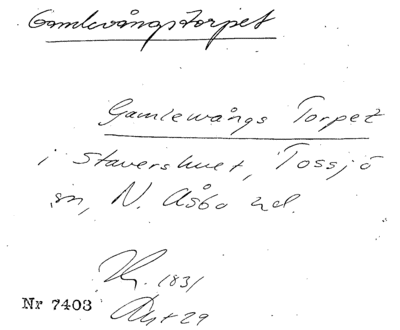 Gamlevångstorpet
Gamlewångs Torpet
i Stavershult, Tossjö
sn, N. Åsbo hd.
1831
Nr 7403